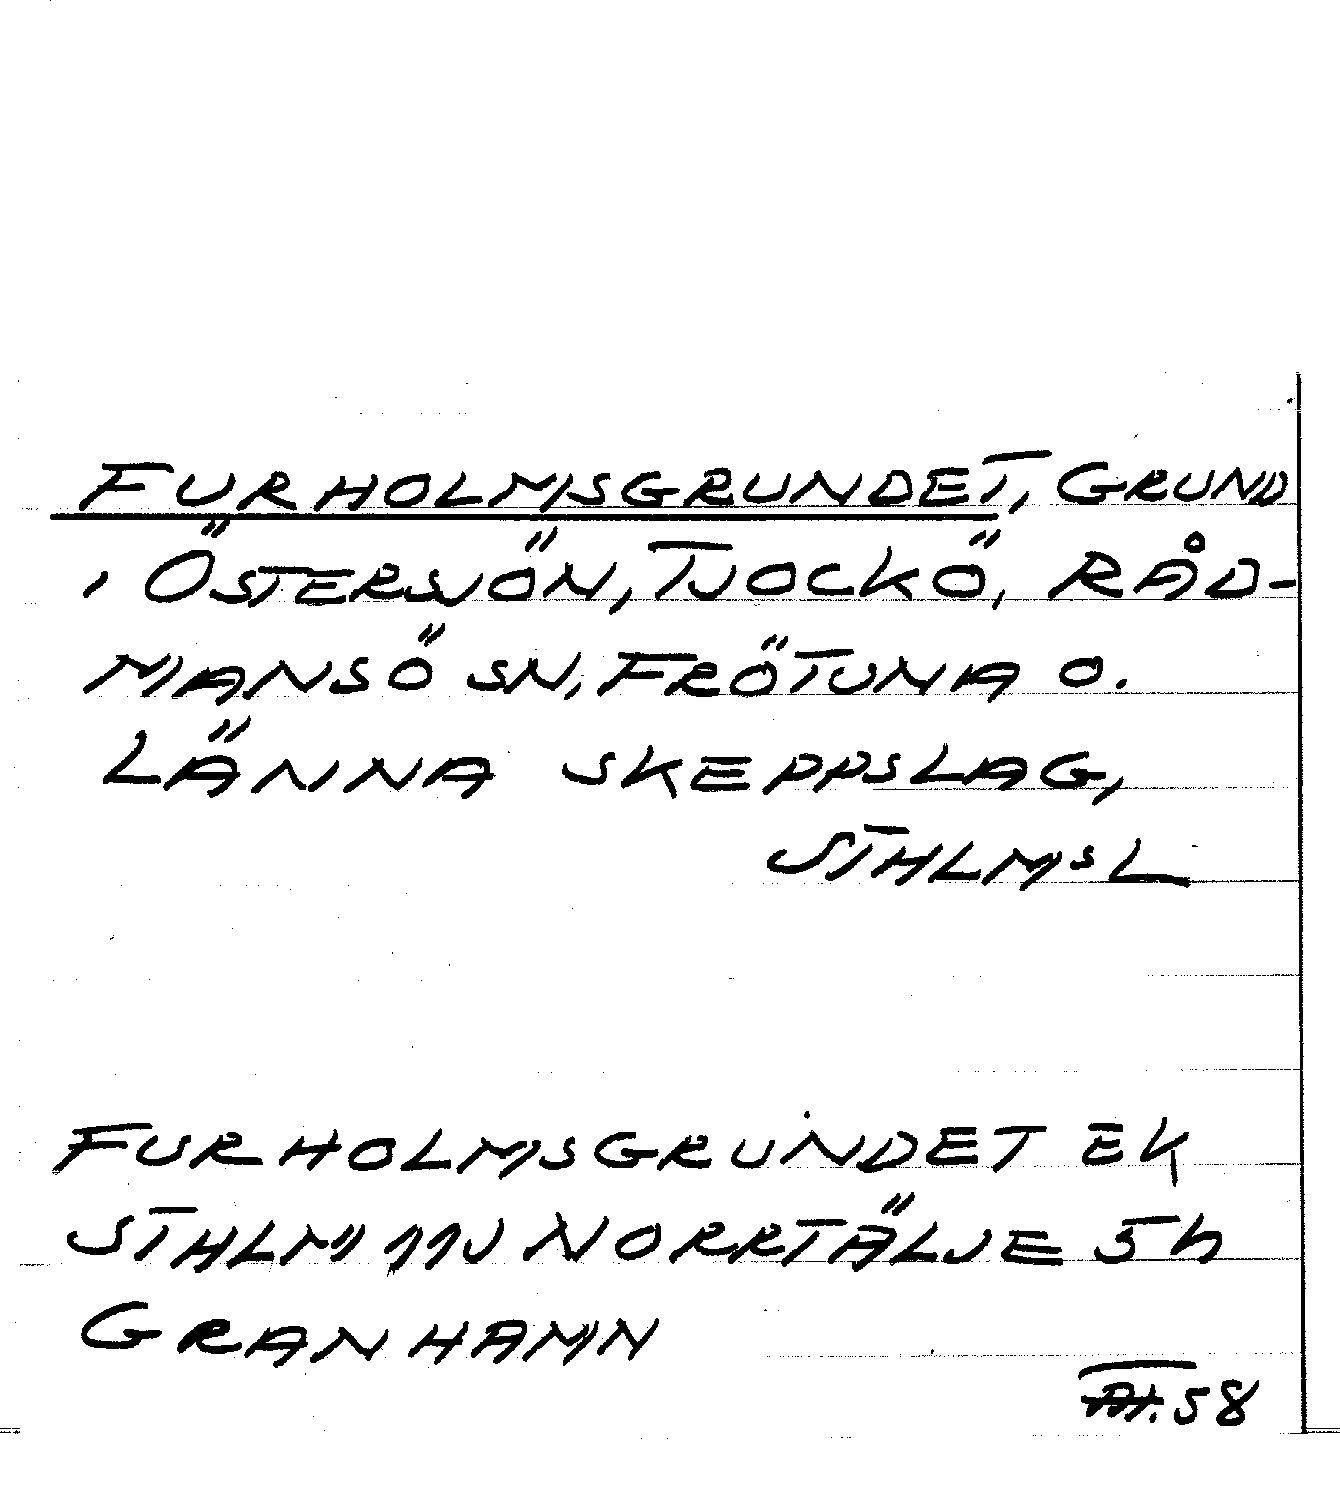 FURHOLMSGRUNDET, GRUND
I ÖSTERSJÖN, TJOCKÖ, RÅD-
MANSÖ SN, FRÖTUNA O.
LÄNNA SKEPPSLAG,
STHLMS L
FURHOLMSGRUNDET EK
STHLM 11J NORRTÄLJE 5h
GRANHAMN
58